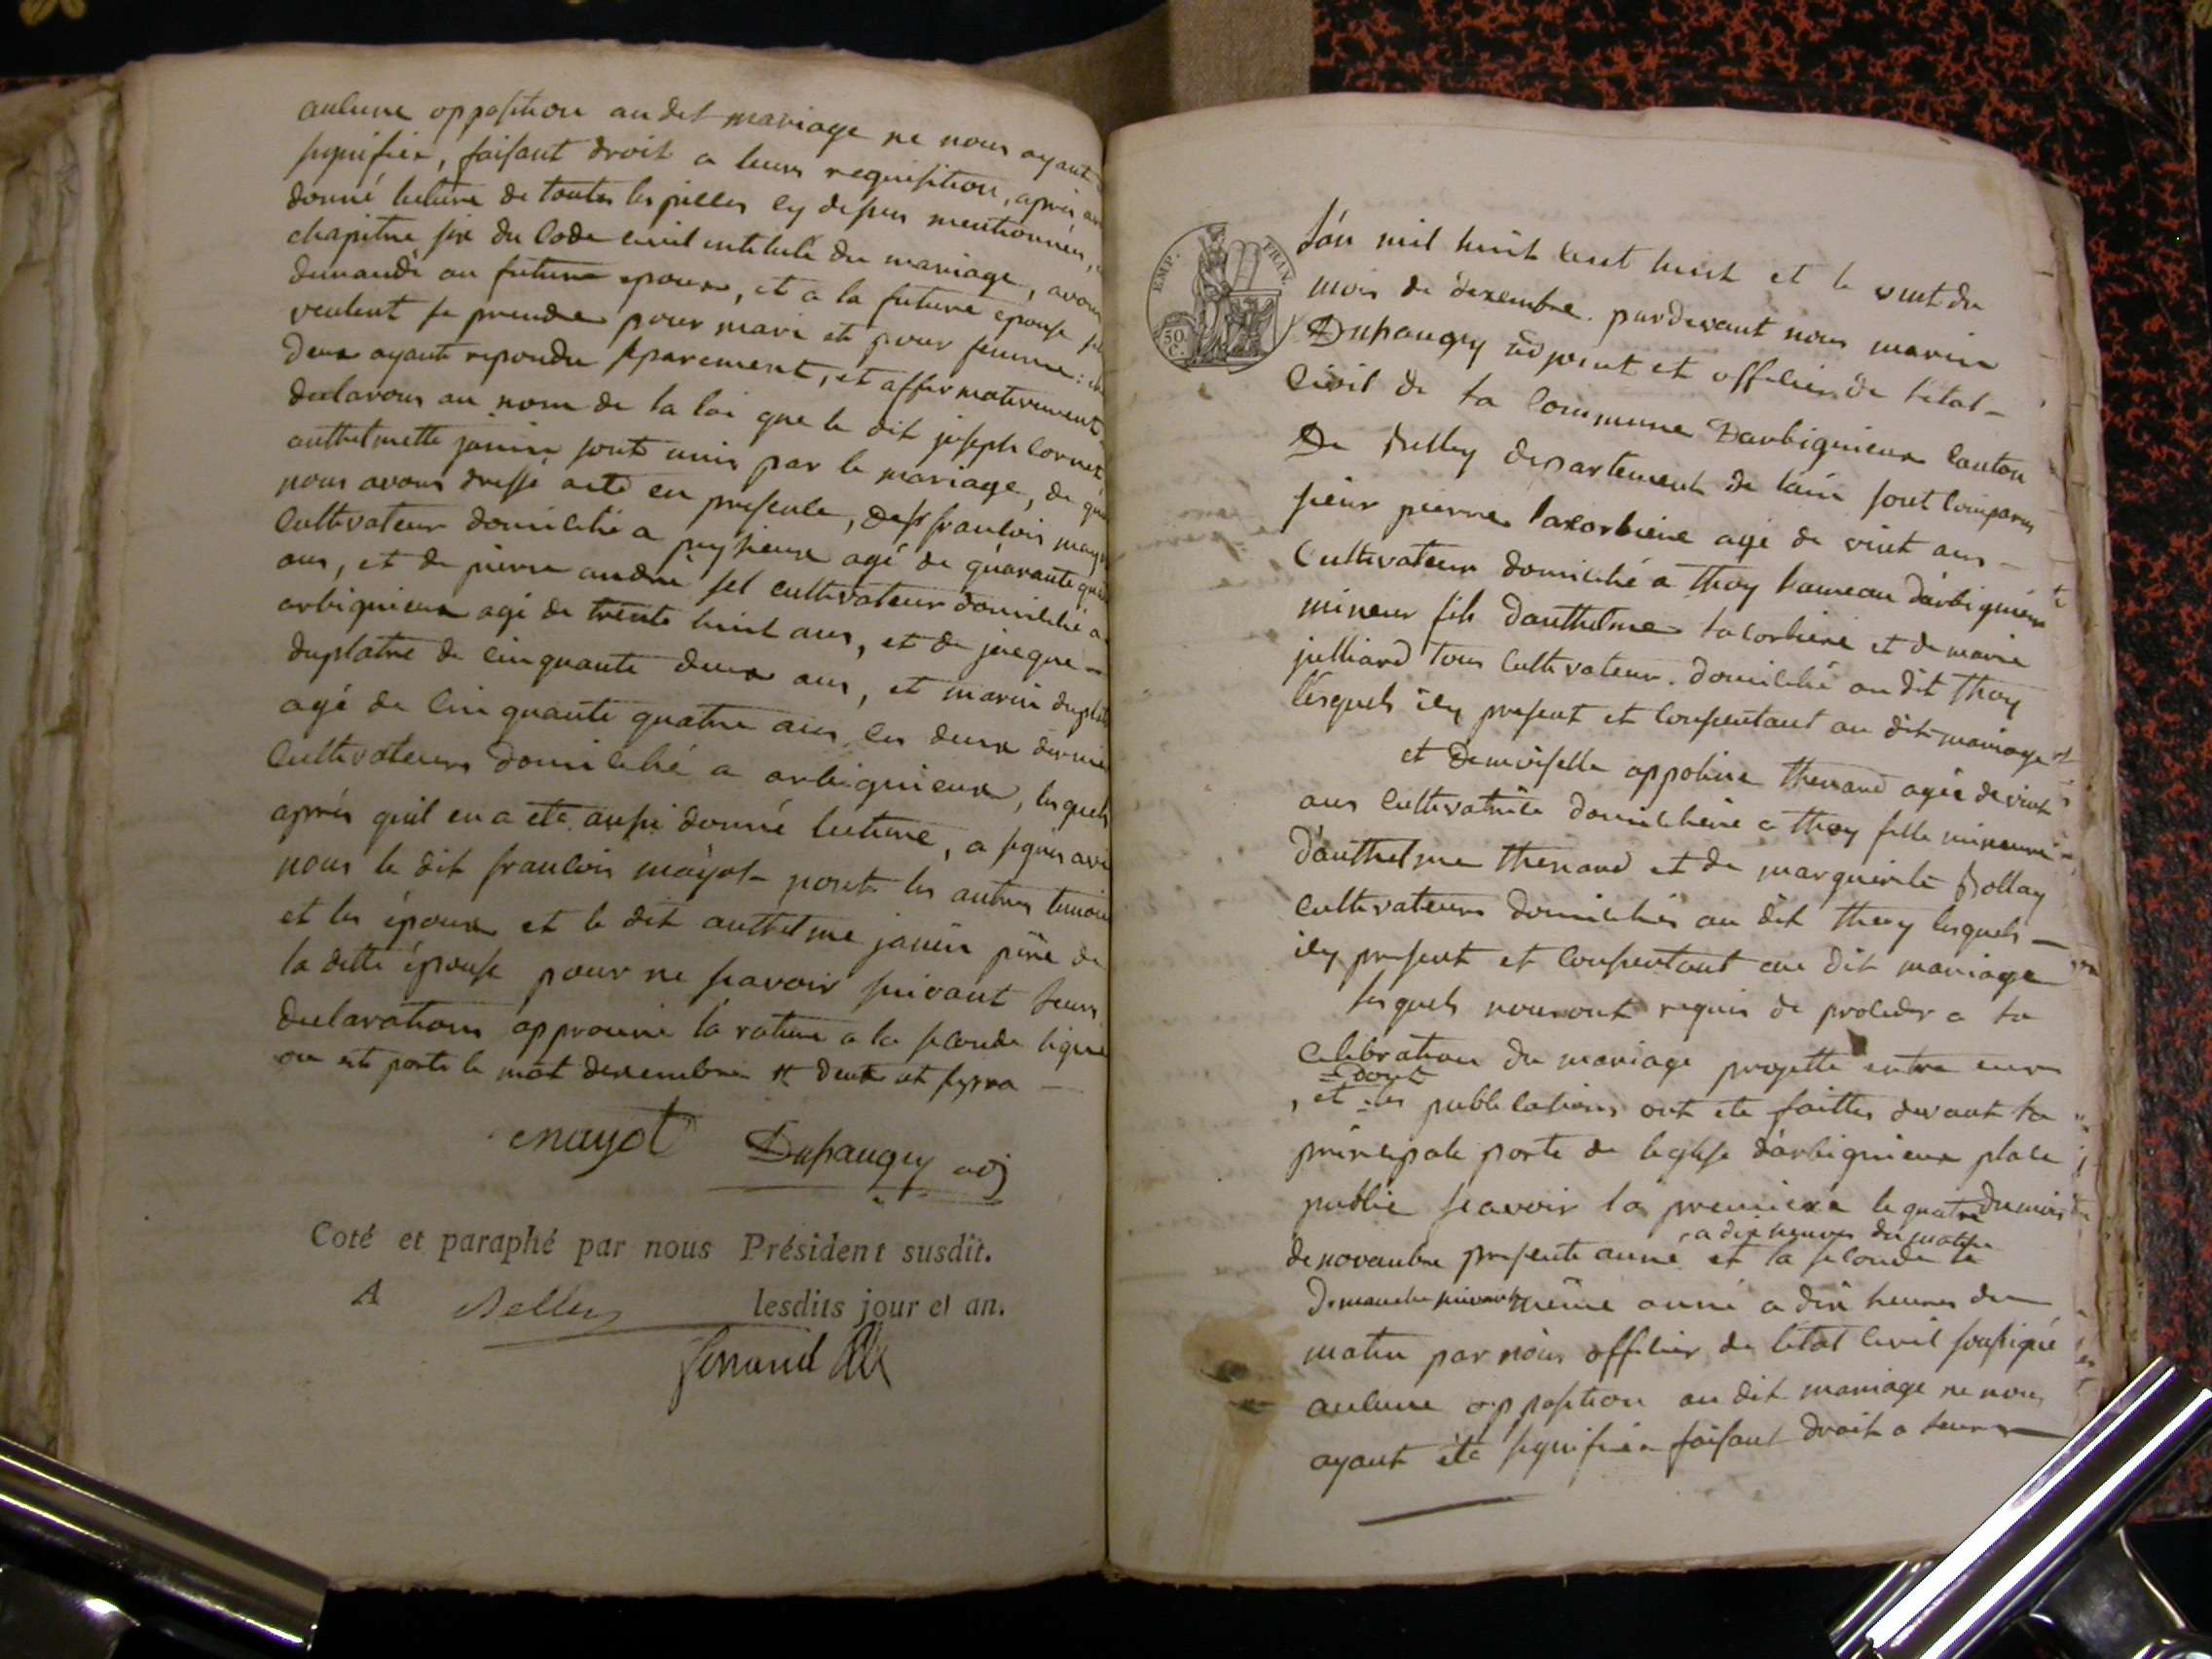 aucune opposition au dit mariage ne nous ayant
signifiée, faisant droit a leurs requisition, après
donné lecture de toutes les pieces cy dessus mentionnées,
chapitre six du Code civil intitulé du mariage, avons
demandé au future epoux, et a la future epouse
veulent se prendre pour mari et pour femme:
deux ayant repondu separement, et affirmativement
declarons au nom de la loi que le dit joseph Cornet
anthelmette janin sont unis par le mariage, de
nous avons dressé acte en presence, francois mayot
Cultivateur domicilié a peyzieux agé de quarante
ans, et de pierre andré sel cultivateur domicilié a
arbignieux agé de trente huit ans, et de jacque -
duplatre de cinquante deux ans, et marin
agé de cinquante quatre ans, les deux
Cultivateurs domicilié a arbignieux, lesquels
après quil en a ete aussi donné lecture, a signés
nous le dit francois mayot nont les autres temoins
et les époux et le dit anthelme janin père de
la ditte épouse pour ne scavoir suivant leurs
declarations approuvé la rature a la seconde ligne
ou est porté le mot dexembre
mayot Dupaugey adj
Coté et paraphé par nous Président susdit.
A Belley lesdits jour et an.
EMP. FRAN.
50 C.
L'an mil huit cent huit et le vint du
mois de dexembre. pardevant nous marin
Dupaugey adjoint et officier de l'etat -
Civil de la Commune Darbignieux Canton
De Belley departement de lain sont comparus
sieur pierre lacorbiere agé de vint ans -
Cultivateur domicilié a thoy hameau d'arbignieux
mineur fils danthelme lacorbiere et de marie
julliard tous Cultivateur. domicilié au dit thoy
lesquels icy present et consentant au dit mariage
et Demoiselle appoline thenand agée de vint
ans Cultivatrice domiciliere a thoy fille mineure
d'anthelme thenand et de marguerite Bollay
Cultivateurs domiciliés au dit thoy lesquels -
icy present et consentant au dit mariage
lesquels nous ont requis de proceder a la
celebration du mariage projetté entre eux
= dont
, et les publications ont ete faittes devant la
principale porte de leglise d'arbignieux place
public scavoir la premiere le quatre du mois
, a dix heures du matin
de novembre presente anné et la seconde le
Dimanche suivant même anné a dix heures du
matin par nous officier de l'etat Civil soussigné
aucune opposition au dit mariage ne nous
ayant été signifiée faisant droit a leurs